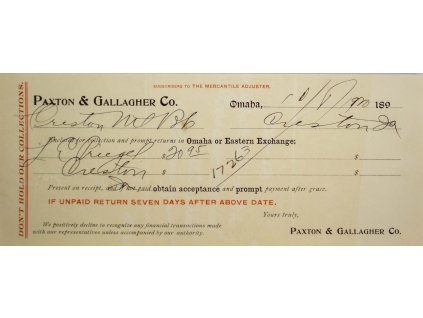 SUBSCRIBERS TO THE MERCANTILE ADJUSTER.
PAXTON & GALLAGHER CO.
Omaha, 10/1 1900 189
Creston Creston Ia
Enclosed for collection and prompt returns in Omaha or Eastern Exchange:
$20 95 $
Creston 17263 $
Present on receipt, and if not paid obtain acceptance and prompt payment after grace.
IF UNPAID RETURN SEVEN DAYS AFTER ABOVE DATE.
We positively decline to recognize any financial transactions made
with our representatives unless accompanied by our authority.
Yours truly,
PAXTON & GALLAGHER CO.
DON'T HOLD OUR COLLECTIONS.